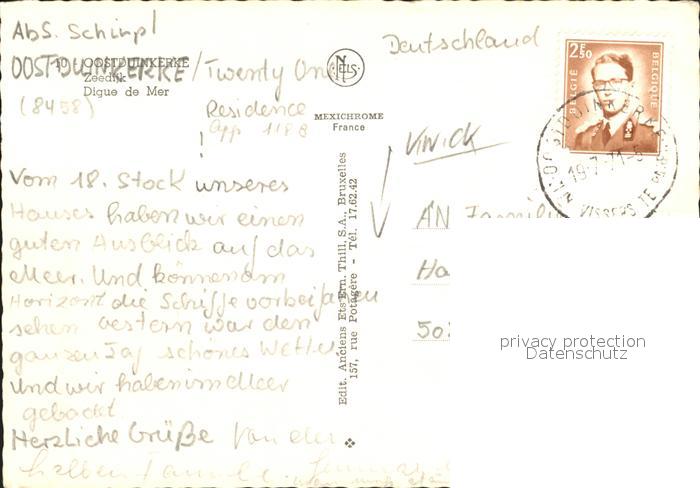 Abs. Schimpl
OOSTDUINKERKE / Twenty One
(8458)
Residence
App 118 B
!
10 OOSTDUINKERKE
Zeedijk
Digue de Mer
NELS
MEXICHROME
France
Deutschland
Vom 18. Stock unseres
Hauses haben wir einen
guten Ausblick auf das
Meer. Und können am
Horizont die Schiffe vorbeifahren
sehen Gestern war den
ganzen Tag schönes Wetter
Und wir haben im Meer
gebadet
Herzliche Grüße Von der
Edit. Anciens Ets Ern. Thill, S.A., Bruxelles
157, rue Potagère - Tél. 17.62.42
2F50
BELGIE BELGIQUE
OOSTDUINKERKE
19-7-71
AN Famili
Ha
50
privacy protection
Datenschutz